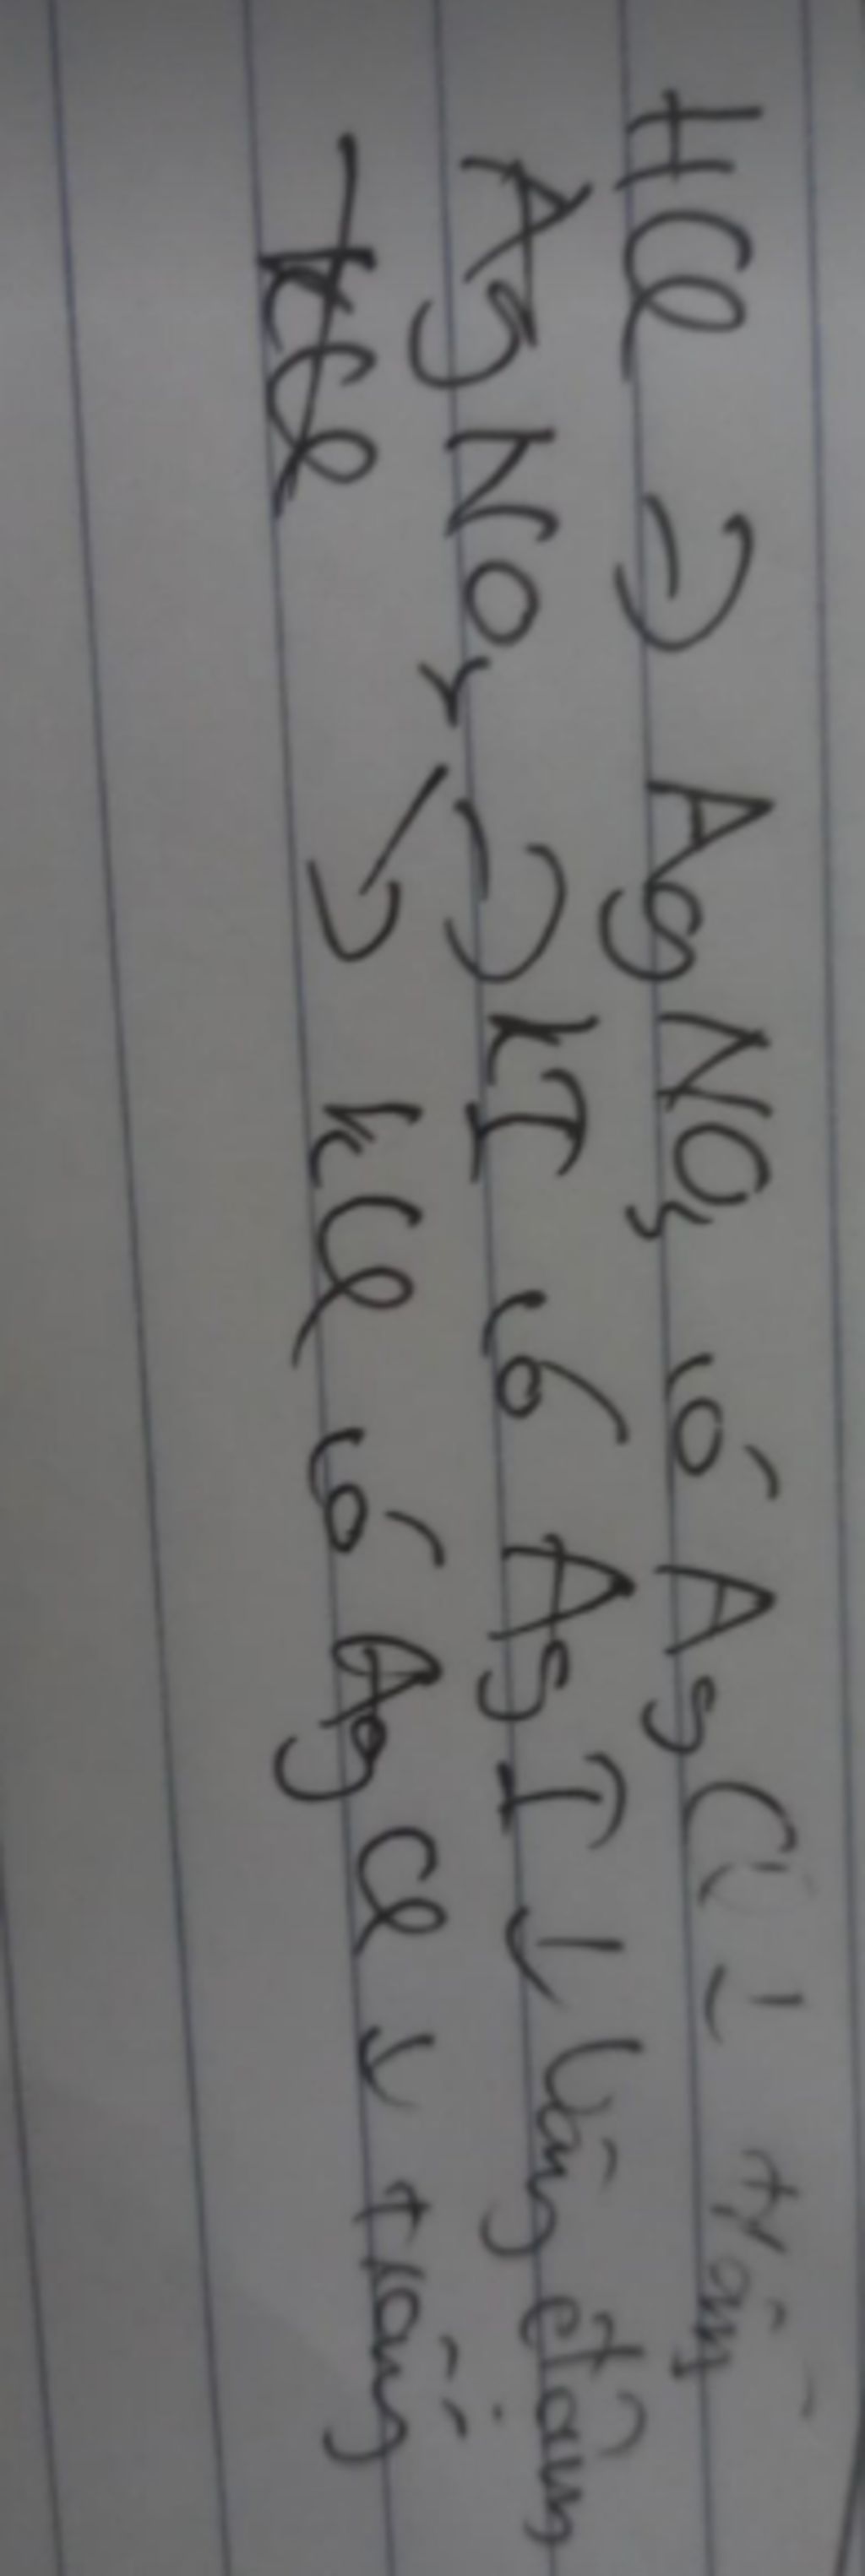 HCl ⊃ AgNO3 có AgCl ↓ trắng
AgNO3 ⊃ KI có AgI ↓ Vàng đậm
KCl → KCl có AgCl ↓ trắng